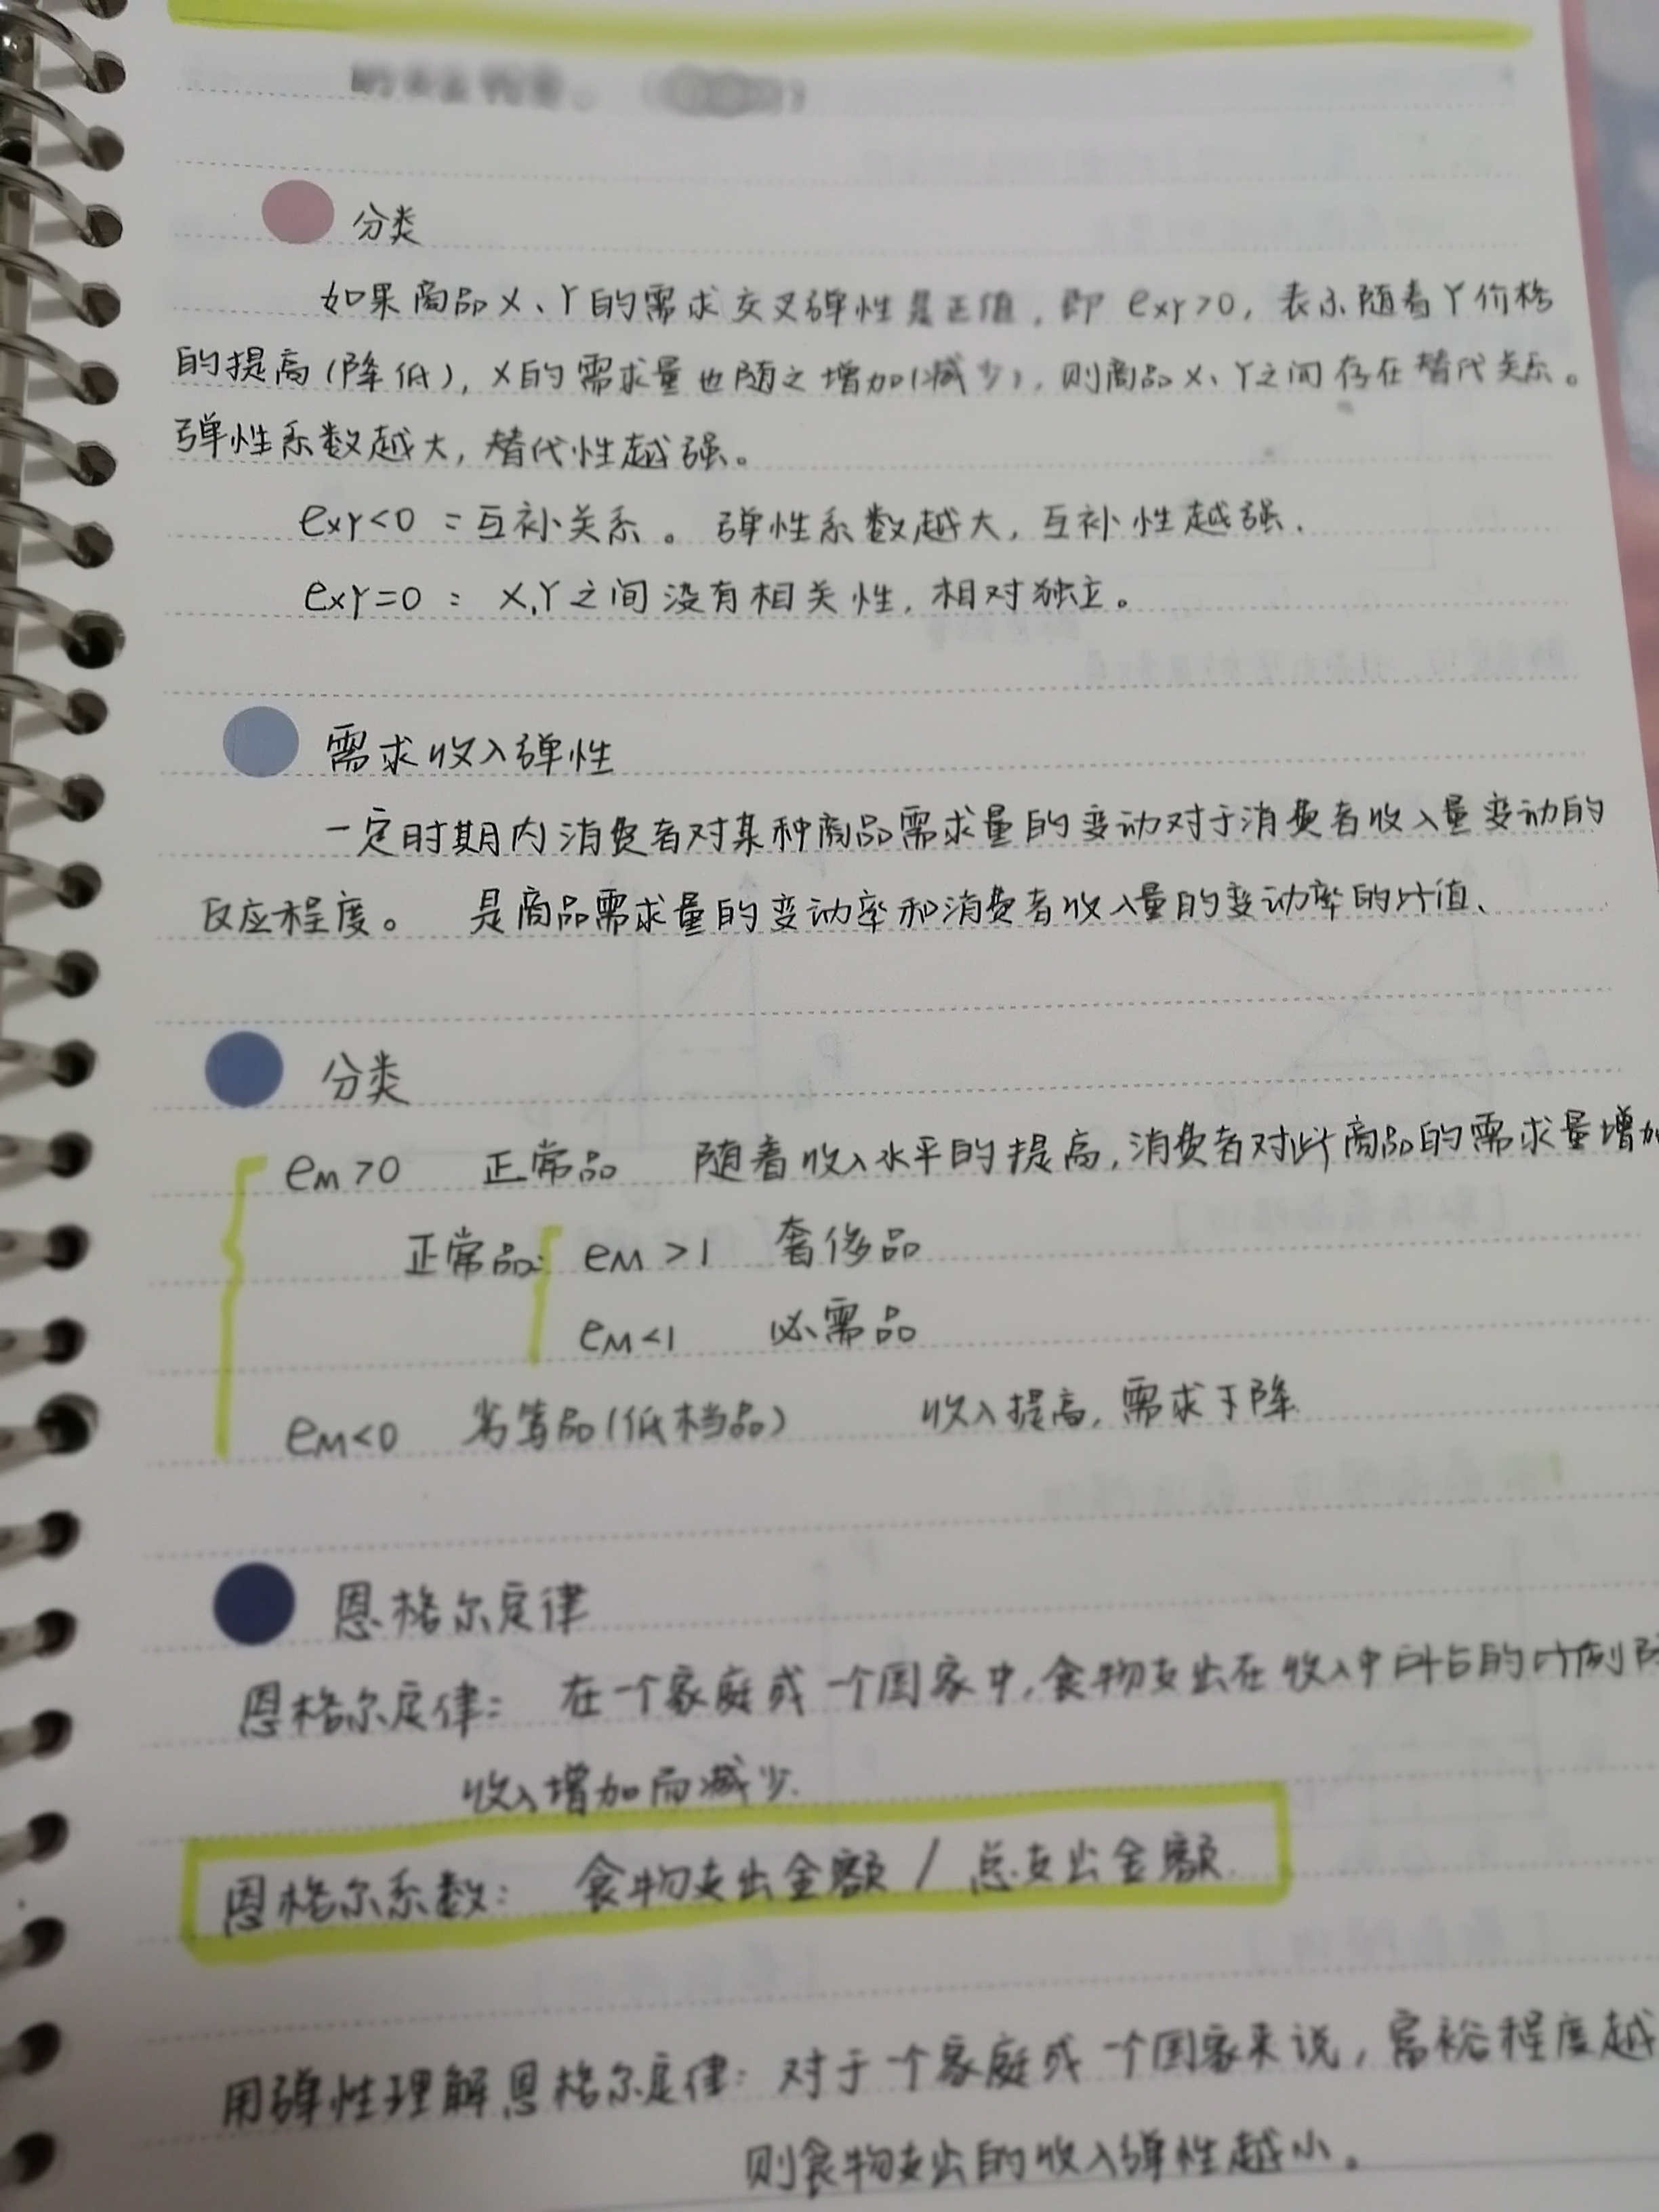 分类
如果商品X、Y的需求交叉弹性是正值,即 eXY>0,表示随着Y价格
的提高(降低),X的需求量也随之增加(减少),则商品X、Y之间存在替代关系。
弹性系数越大,替代性越强。
eXY<0 : 互补关系。弹性系数越大,互补性越强.
eXY=0 : X,Y之间没有相关性,相对独立。
需求收入弹性
一定时期内消费者对某种商品需求量的变动对于消费者收入量变动的
反应程度。 是商品需求量的变动率和消费者收入量的变动率的比值、
分类
eM>0 正常品 随着收入水平的提高,消费者对此商品的需求量增加
正常品: eM>1 奢侈品
eM<1 必需品
eM<0 劣等品(低档品) 收入提高,需求下降
恩格尔定律
恩格尔定律: 在一个家庭或一个国家中,食物支出在收入中所占的比例
收入增加而减少.
恩格尔系数: 食物支出金额 / 总支出金额.
用弹性理解恩格尔定律: 对于一个家庭或一个国家来说,富裕程度越
则食物支出的收入弹性越小。